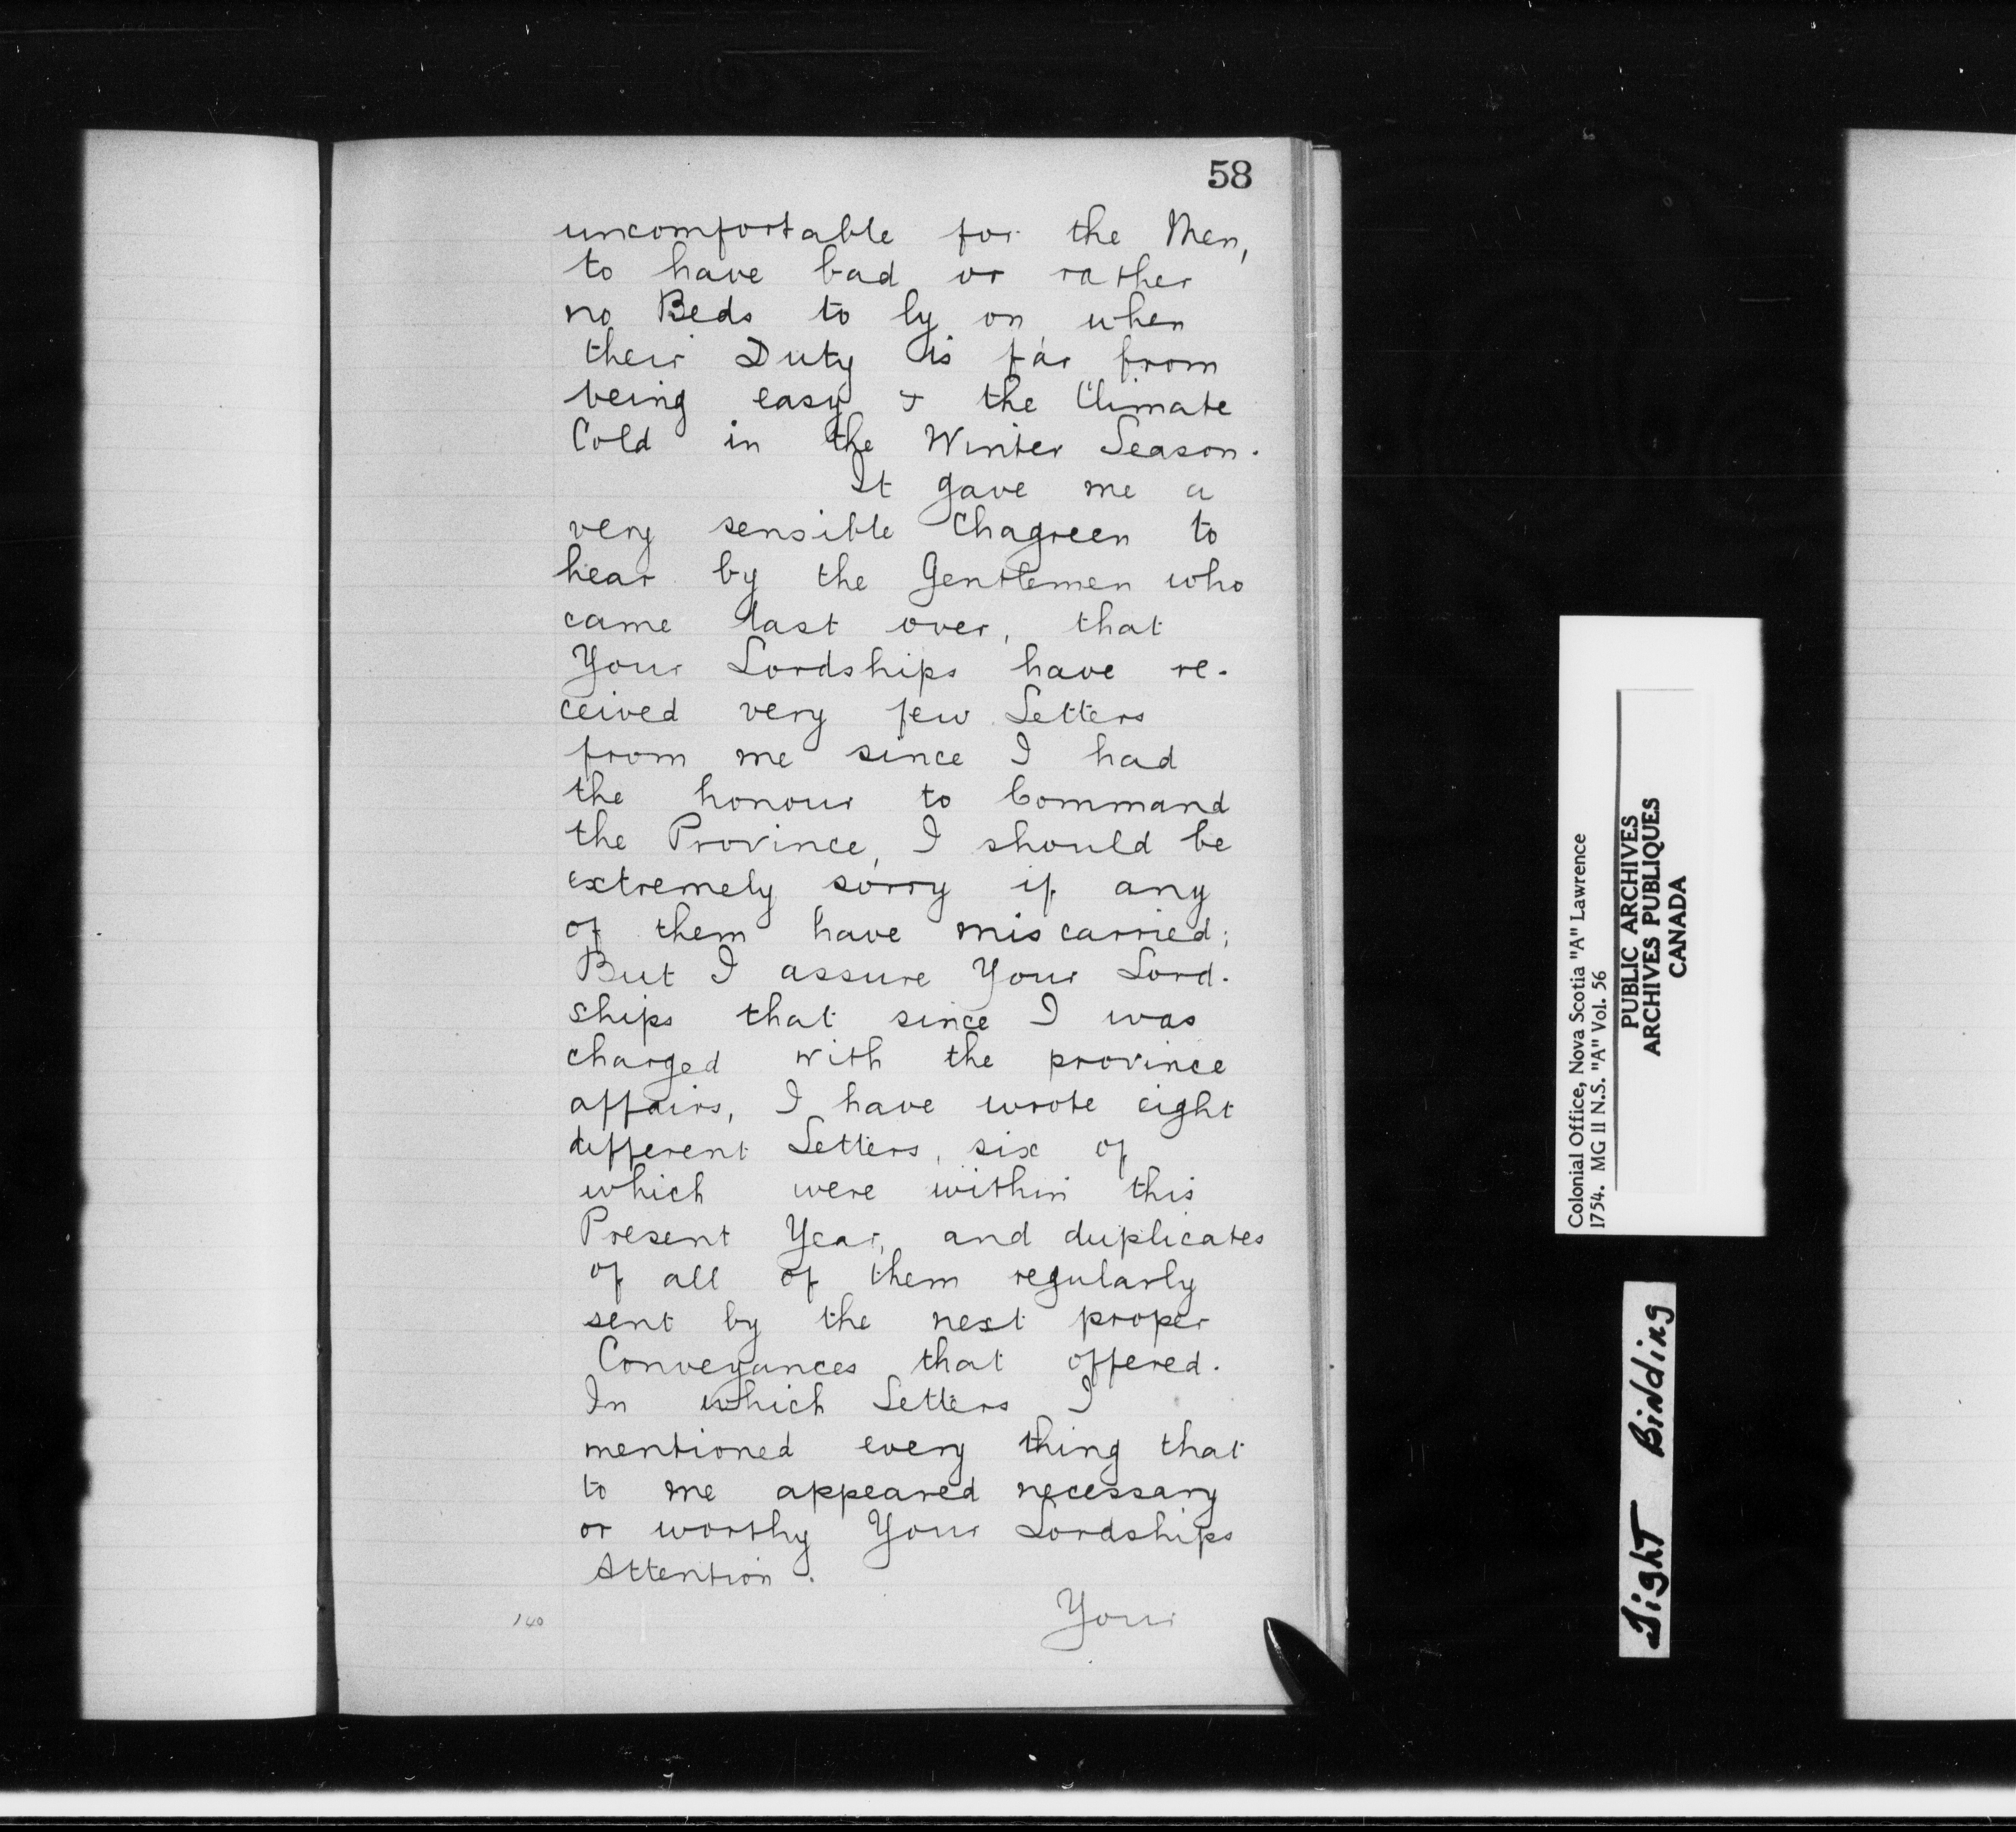 58
uncomfortable for the Men,
to have bad or rather
no Beds to ly on when
their Duty is far from
being easy & the Climate
Cold in the Winter Season.
It gave me a
very sensible Chagreen to
hear by the Gentlemen who
came last over, that
Your Lordships have re-
ceived very few Letters
from me since I had
the honour to Command
the Province, I should be
extremely sorry if any
of them have miscarried;
But I assure Your Lord-
ships that since I was
charged with the province
affairs, I have wrote eight
different Letters, six of
which were within this
Present Year, and duplicates
of all of them regularly
sent by the next proper
Conveyances that offered.
In which Letters I
mentioned every thing that
to me appeared necessary
or worthy Your Lordships
Attention.
Your
140
Colonial Office, Nova Scotia "A" Lawrence
1754. MG 11 N.S. "A" Vol. 56
PUBLIC ARCHIVES
ARCHIVES PUBLIQUES
CANADA
Tight Binding